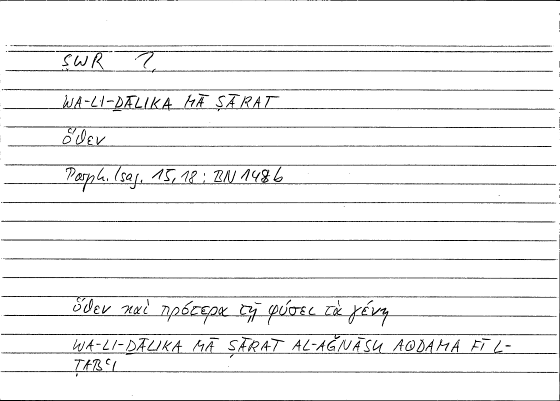 ṢWR 2,
WA-LI-ḎĀLIKA MĀ ṢĀRAT
ὅθεν
Porph. Isag. 15,18 : BN 148b
ὅθεν καὶ πρότερα τῇ φύσει τὰ γένη
WA-LI-ḎĀLIKA MĀ ṢĀRAT AL-AǦNĀSU AQDAMA FĪ L-
ṬABʿI